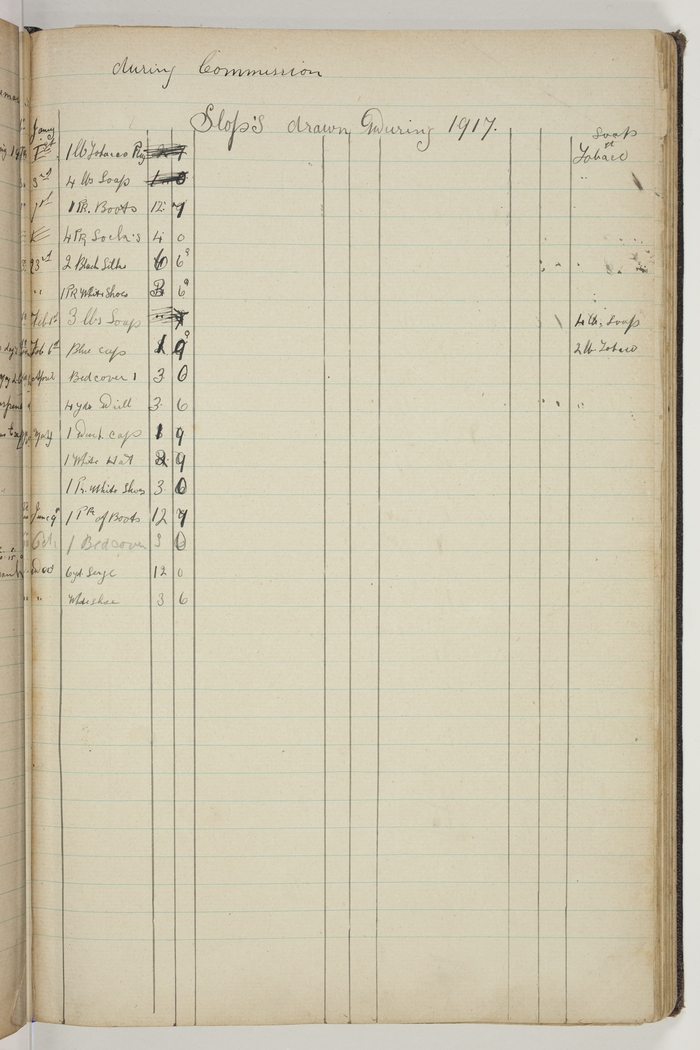 during Commission
Slop's drawn During 1917.
Soap
Jany 1st 1 lb Tobacco Tobaco
3rd 4 lbs Soap "
1 PR. Boots 12
4 PR Socks 4 0
23rd 2 Black Silks 6 6
" 1 PR White Shoes 3 6
Feb 1st 3 lbs Soap 4 lbs Soap
Feb 6th Blue caps 1 9 2 lb Tobaco
April Bedcover 1 3 0
4 yds Drill 3 6 "
May 1 Duck caps 1 9
1 White Hat 2 9
1 Pr. White Shoes 3 0
June 9 1 PR of Boots 12 9
Oct. 1 Bedcover 3 0
6 yd. Serge 12 0
" White shoe 3 6